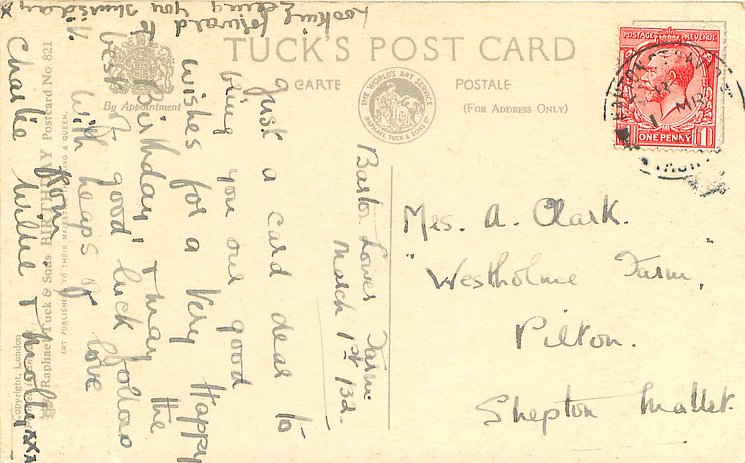 TUCK'S POST CARD
CARTE POSTALE
(FOR ADDRESS ONLY)
By Appointment
THE WORLD'S ART SERVICE
RAPHAEL TUCK & SONS LD
POSTAGE REVENUE
ONE PENNY
1 MR
Barton Lower Farm
March 1st 132.
Just a card dear to
bring you our good
wishes for a Very Happy
Birthday, & may the
best of good luck follow
it.
With heaps of love
from
Charlie Willie & Molly xxx
Looking forward to
seeing you Thursday
x
Mrs. A. Clark.
"Westholme Farm,"
Pilton.
Shepton Mallet.
Raphael Tuck & Sons BIRTHDAY Postcard No 821
ART PUBLISHERS TO THEIR MAJESTIES THE KING & QUEEN.
Copyright, London